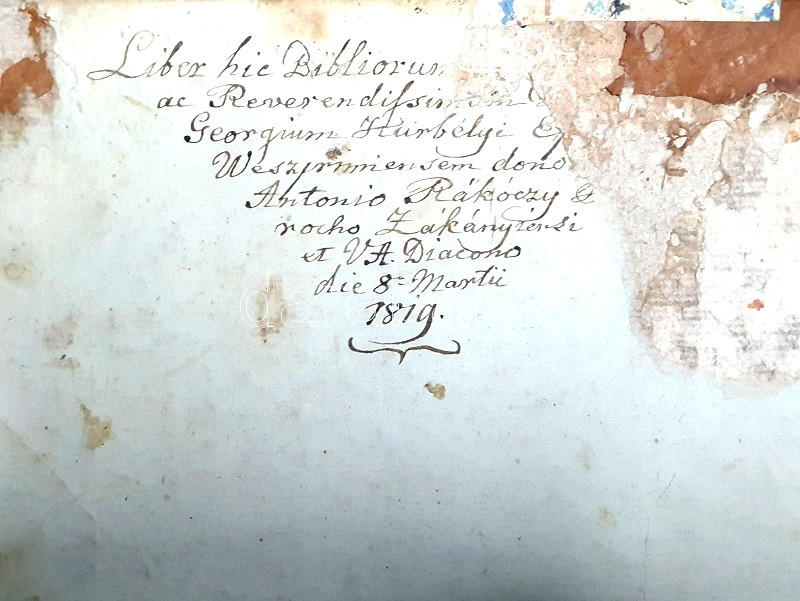 Liber hic Bibliorum
ac Reverendissimum
Georgium Kurbélyi
Weszprimiensem dono
Antonio Rákóczy
rocho Zákányiensi
et VA. Diacono
die 8ª Martii
1819.